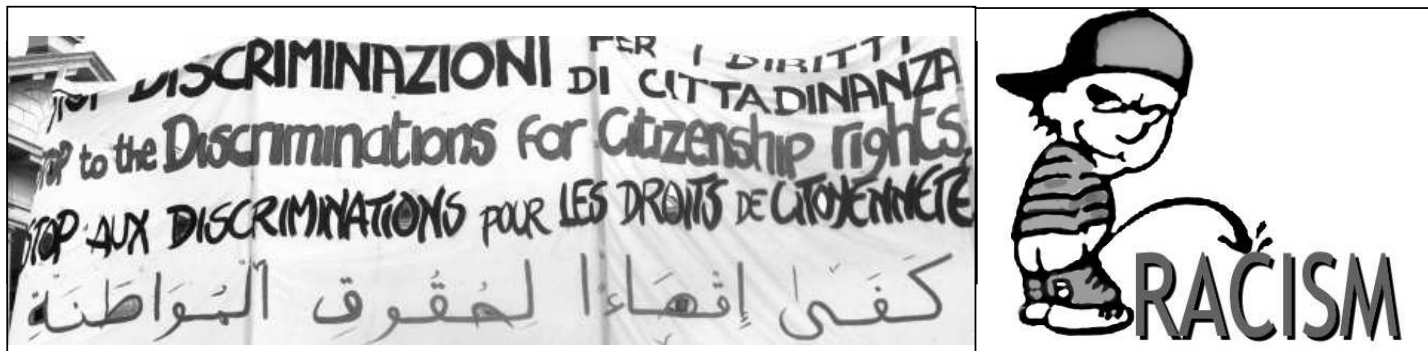 DISCRIMINAZIONI PER I DIRITTI
DI CITTADINANZA
to the Discriminations for Citizenship rights
STOP AUX DISCRIMINATIONS POUR LES DROITS DE CITOYENNETÉ
كَفَىٰ إِقصَاءًا لحُقُوق المُوَاطَنَةِ
RACISM